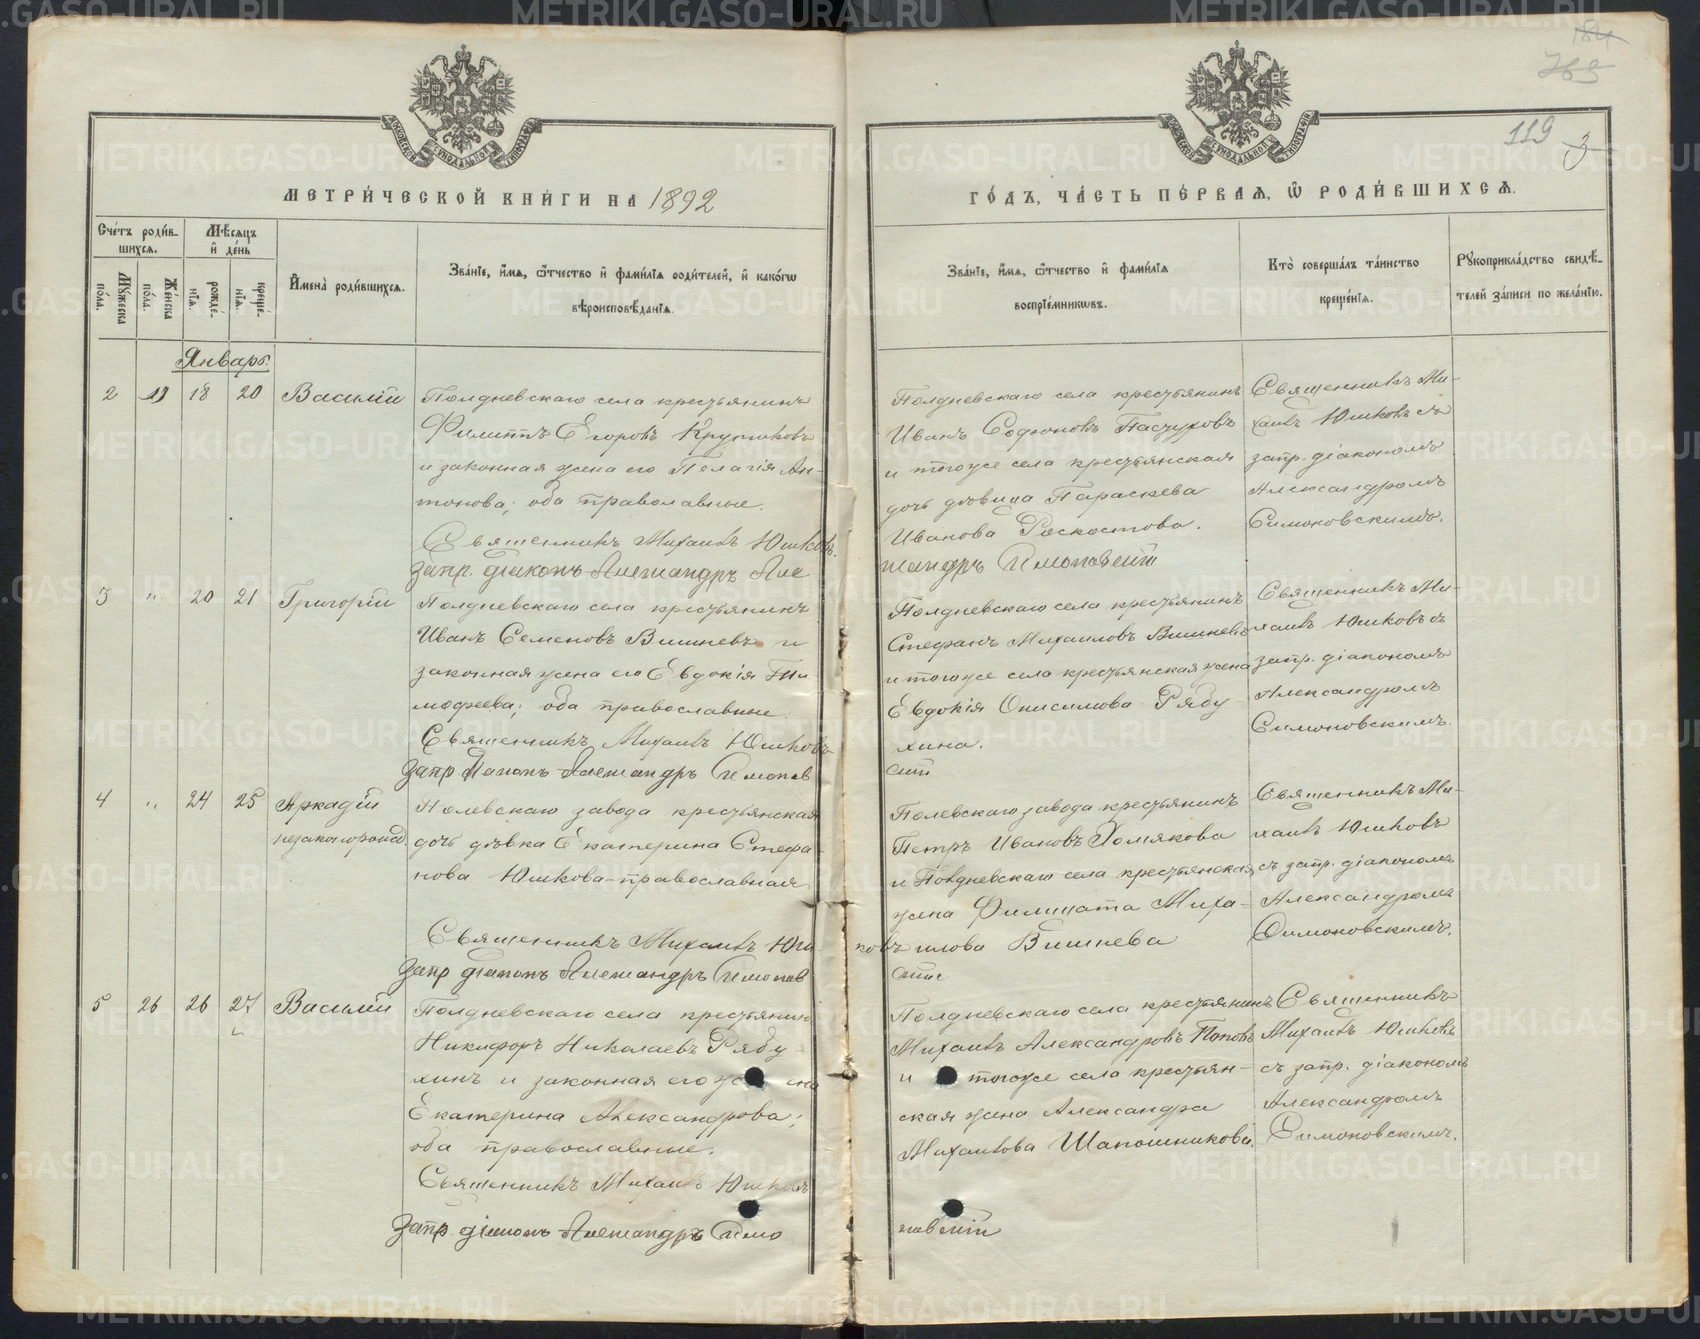 184
765
119 3
МЕТРИ́ЧЕСКОЙ КНИ́ГИ НА 1892
ГО́ДЪ, ЧА́СТЬ ПЕ́РВАѦ, Ѽ РОДИ́ВШИХСѦ.
Сче́тъ роди́в-
шихсѧ.
Мѣ́сѧцъ
и҆ де́нь
Мꙋ́жеска
по́ла.
Же́нска
по́ла.
рожде́-
нїѧ.
креще́-
нїѧ.
И҆мена̀ роди́вшихсѧ.
Зва́нїе, и҆́мѧ, ѻ҆́тчество и҆ фами́лїѧ роди́телей, и҆ како́гѡ
вѣроисповѣ́данїѧ.
Зва́нїе, и҆́мѧ, ѻ҆́тчество и҆ фами́лїѧ
воспрїе́мникѡвъ.
Кто̀ соверша́лъ та́инство
креще́нїѧ.
Рꙋкоприкла́дство свидѣ́-
телей за́писи по жела́нїю.
Январь.
2 18 20 Василій
Полдневскаго села крестьянинъ
Филиппъ Егоровъ Крупиковъ
и законная жена его Пелагія Ан-
тонова; оба православные.
Священникъ Михаилъ Юшковъ.
Запр. діаконъ Александръ
Полдневскаго села крестьянинъ
Иванъ Софроновъ Пастуховъ
и тогоже села крестьянская
дочь дѣвица Параскева
Иванова Роскостова.
Священникъ Ми-
хаилъ Юшковъ съ
запр. діакономъ
Александромъ
Симоновскимъ.
3 " 20 21 Григорій
Полдневскаго села крестьянинъ
Иванъ Семеновъ Вишневъ и
законная жена его Евдокія Ти-
мофеева; оба православные.
Священникъ Михаилъ Юшковъ
Запр діаконъ Александръ Симонов
Полдневскаго села крестьянинъ
Стефанъ Михаиловъ Вишневъ
и тогоже села крестьянская жена
Евдокія Онисимова Рябу-
хина.
скій
Священникъ Ми-
хаилъ Юшковъ съ
запр. діакономъ
Александромъ
Симоновскимъ.
4 " 24 25 Аркадій
незаконорожд
Полевскаго завода крестьянская
дочь дѣвка Екатерина Стефа-
нова Юшкова-православная
Священникъ Михаилъ Юш-
ковъ
Запр діаконъ Александръ Симонов
Полевскаго завода крестьянинъ
Петръ Ивановъ Хомякова
и Полдневскаго села крестьянская
жена Филицата Миха-
илова Вишнева
скій
Священникъ Ми-
хаилъ Юшковъ
съ запр. діакономъ
Александромъ
Симоновскимъ.
5 26 26 27 Василій
Полдневскаго села крестьянинъ
Никифоръ Николаевъ Рябу-
хинъ и законная его жена
Екатерина Александрова;
оба православные.
Священникъ Михаилъ Юшковъ
Запр. діаконъ Александръ Симо
новскій
Полдневскаго села крестьянинъ
Михаилъ Александровъ Поповъ
и тогоже села крестьян-
ская жена Александра
Михаилова Шапошникова.
Священникъ
Михаилъ Юшковъ
съ запр. діакономъ
Александромъ
Симоновскимъ.
METRIKI.GASO-URAL.RU